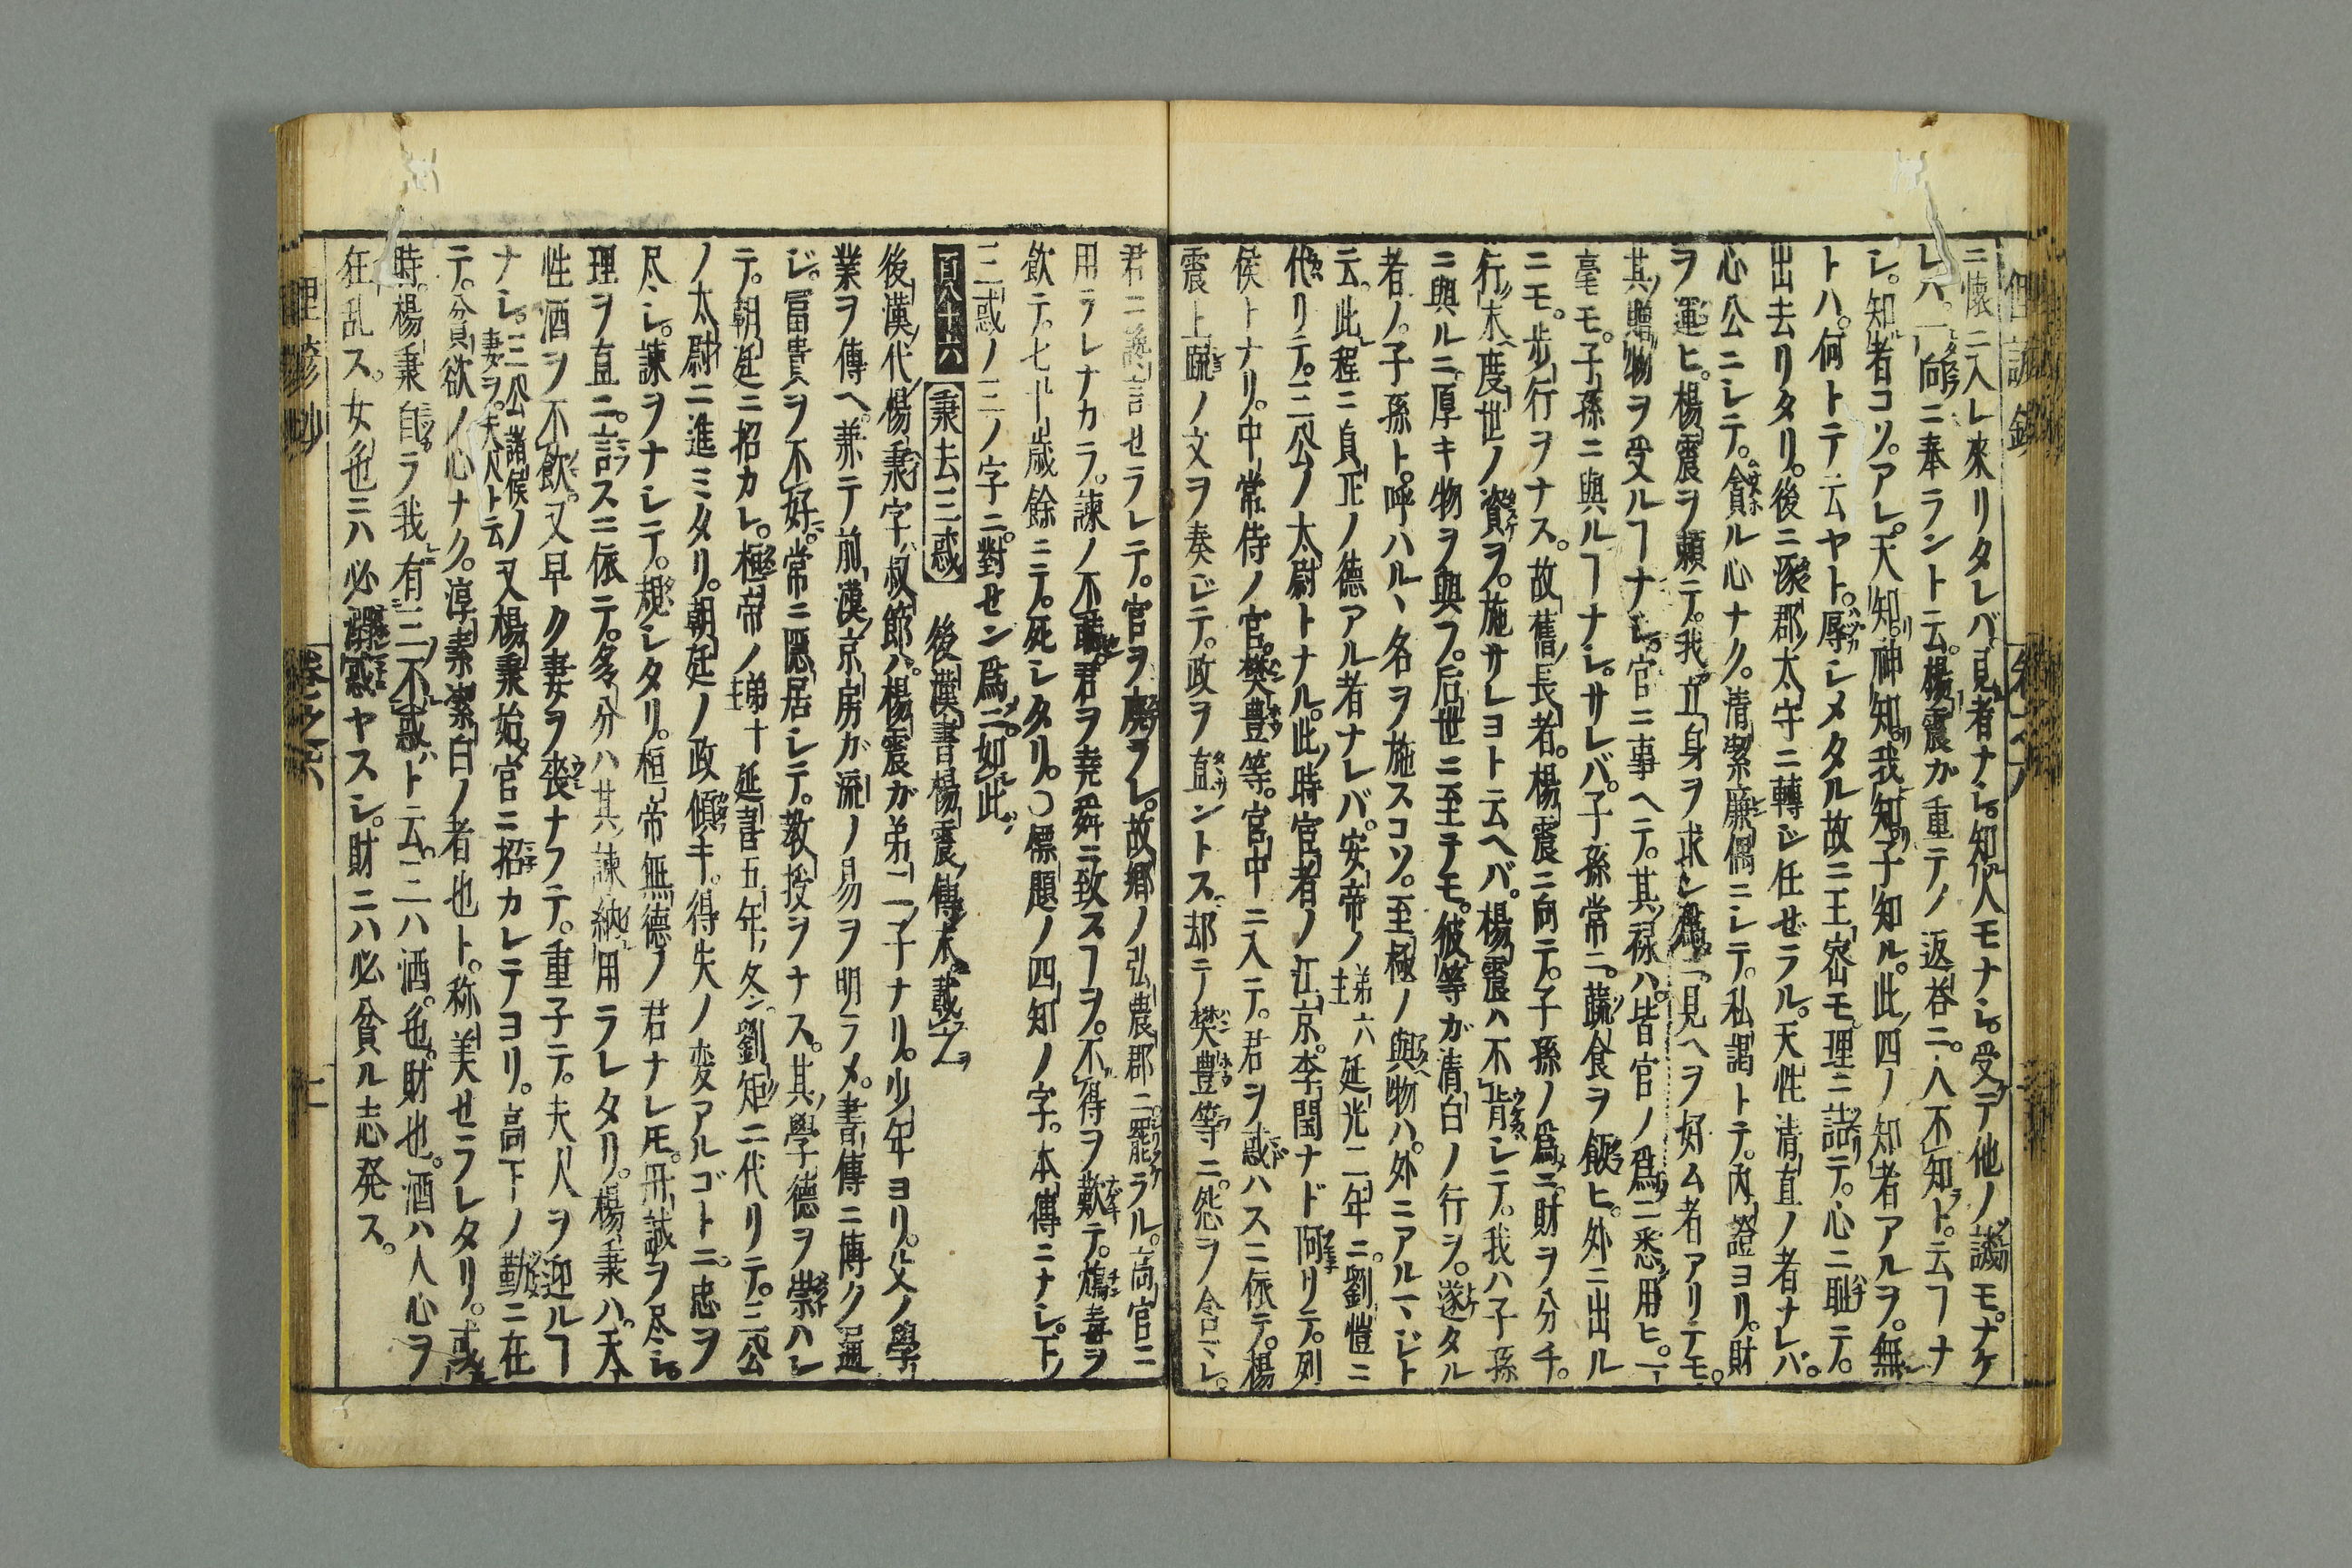 ニ懐ニ入レ來リタレバ。見者ナシ。知人モナシ。受テ他ノ譏モ。ナケ
レハ。一向ニ奉ラントト云。楊震ガ重テノ返荅ニ。人不知ト。云フナ
シ。知者コソ。アレ。天知。神知。我知。子知ル。此四ノ知者アルヲ。無
トハ。何トテ云ヤト。辱シメタル故ニ王密モ理ニ詰テ。心ニ耻テ。
出去リタリ。後ニ涿郡ノ太守ニ轉ジ任ゼラル。天性清直ノ者ナレバ。
心公ニシテ。貪ル心ナク。清潔廉偶ニシテ。私謁トテ。内證ヨリ。財
ヲ運ヒ。楊震ヲ頼テ。我立身ヲ求シ見ヘヲ好ム者アリテモ。
其贈物ヲ受ルヿナシ。官ニ事ヘテ。其禄ハ。皆官ノ爲ニ悉用ヒ。一
毫モ。子孫ニ與ルヿナシ。サレバ。子孫常ニ。蔬食ヲ飯ヒ。外ニ出ル
ニモ。歩行ヲナス。故舊長者。楊震ニ向テ。子孫ノ爲ニ。財ヲ分チ。
行末度世ノ資ヲ。施サレヨト云ヘバ。楊震ハ不肯シテ。我ハ子孫
ニ與ルニ。厚キ物ヲ與フ。后世ニ至テモ。彼等ガ清白ノ行ヲ。遂タル
者ノ。子孫ト。呼ハルヽ名ヲ施スコソ。至極ノ與物ハ。外ニアルマジト
云。此程ニ貞正ノ德アル者ナレバ。安帝ノ弟六主延光二年ニ。劉愷ニ
代リテ。三公ノ太尉トナル。此時官者ノ江京。李閏ナド阿リテ。列
侯トナリ。中常侍ノ官。樊豊等。官中ニ入テ。君ヲ惑ハスニ依テ。楊
震上䟽ノ文ヲ奏ジテ。政ヲ直ントス。却テ樊豊等ニ。怨ヲ含マレ。
君ニ讒言セラレテ。官ヲ廃ラレ。故郷ノ弘農郡ニ罷ラル。高官ニ
用ラレナカラ。諫ノ不聽。君ヲ堯舜ニ致スヿヲ。不得ヲ歎テ。鴆毒ヲ
飲テ。七十歳餘ニテ。死シタリ。〇標題ノ四知ノ字。本傳ニナシ。下ノ
三惑ノ三ノ字ニ。對セン爲ニ。如此。
百八十六 秉去三惑 後漢書楊震傳末載之
後漢ノ代楊秉字ハ叔節ハ。楊震ガ弟二ノ子ナリ。少年ヨリ。父ノ學
業ヲ傳ヘ。兼テ前漢京房ガ流ノ易ヲ明ラメ。書傳ニ博ク通
ジ。冨貴ヲ不好。常ニ隠居シテ。教授ヲナス。其學德ヲ崇ハシ
テ。朝廷ニ招カレ。桓帝ノ弟十主延喜五年ノ冬。劉矩ニ代リテ。三公
ノ太尉ニ進ミタリ。朝廷ノ政傾キ。得失ノ変アルゴトニ。忠ヲ
尽シ。諫ヲナシテ。䂓シタリ。桓帝無德ノ君ナレ𪜈。丹誠ヲ尽シ。
理ヲ直ニ。言スニ依テ。多分ハ其諫納用ラレタリ。楊秉ハ。天
性酒ヲ不飲。又早ク妻ヲ喪ナフテ。重子テ。夫人ヲ迎ルヿ
ナシ。三公諸候ノ妻ヲ。夫人ト云 又楊秉始官ニ招カレテヨリ。高下ノ勤ニ在
テ。貧欲ノ心ナク。淳素潔白ノ者也ト。称美セラレタリ。或
時。楊秉自ラ我有三不惑ト云。一ハ酒。色。財也。酒ハ人心ヲ
狂乱ス。女色ニハ必溺惑ヤスシ。財ニハ必貧ル志発ス。
理䟽抄 巻之六